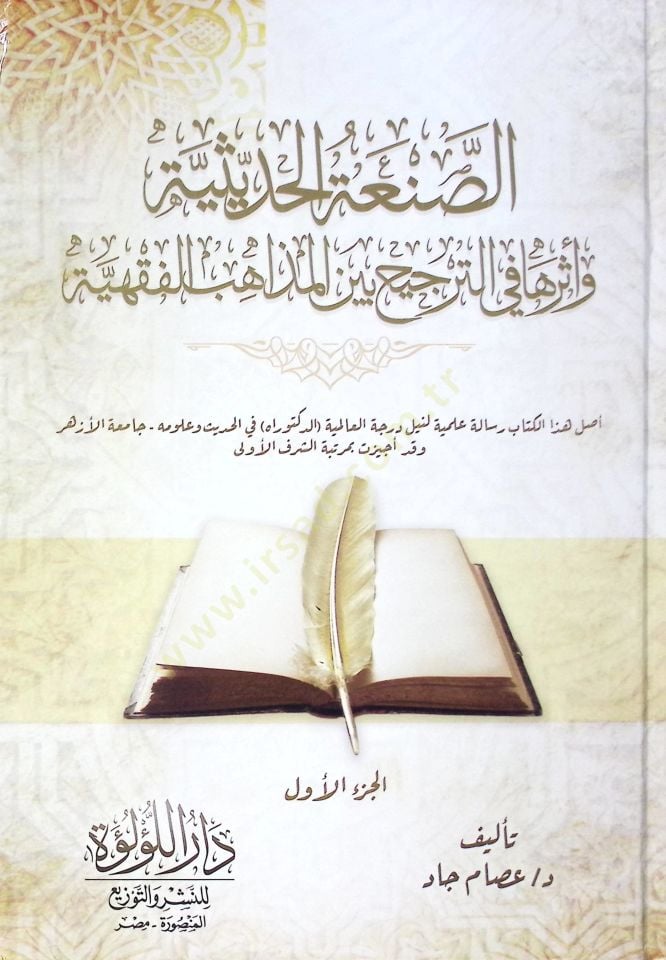 الصَّنعَةُ الحَديثيَّة
وَأثرهَا في التَّرجيح بَينَ المذاهِبِ الفقهيَّة
أصل هذا الكتاب رسالة علمية لنيل درجة العالمية (الدكتوراه) في الحديث وعلومه - جامعة الأزهر
وقد أجيزت بمرتبة الشرف الأولى
www.irsad.com.tr
الجزء الأول
تأليف
د/ عصام جاد
دَارُ اللُّؤلُؤة
للنَّشرِ والتَّوزيع
المنصُورَة - مِصر